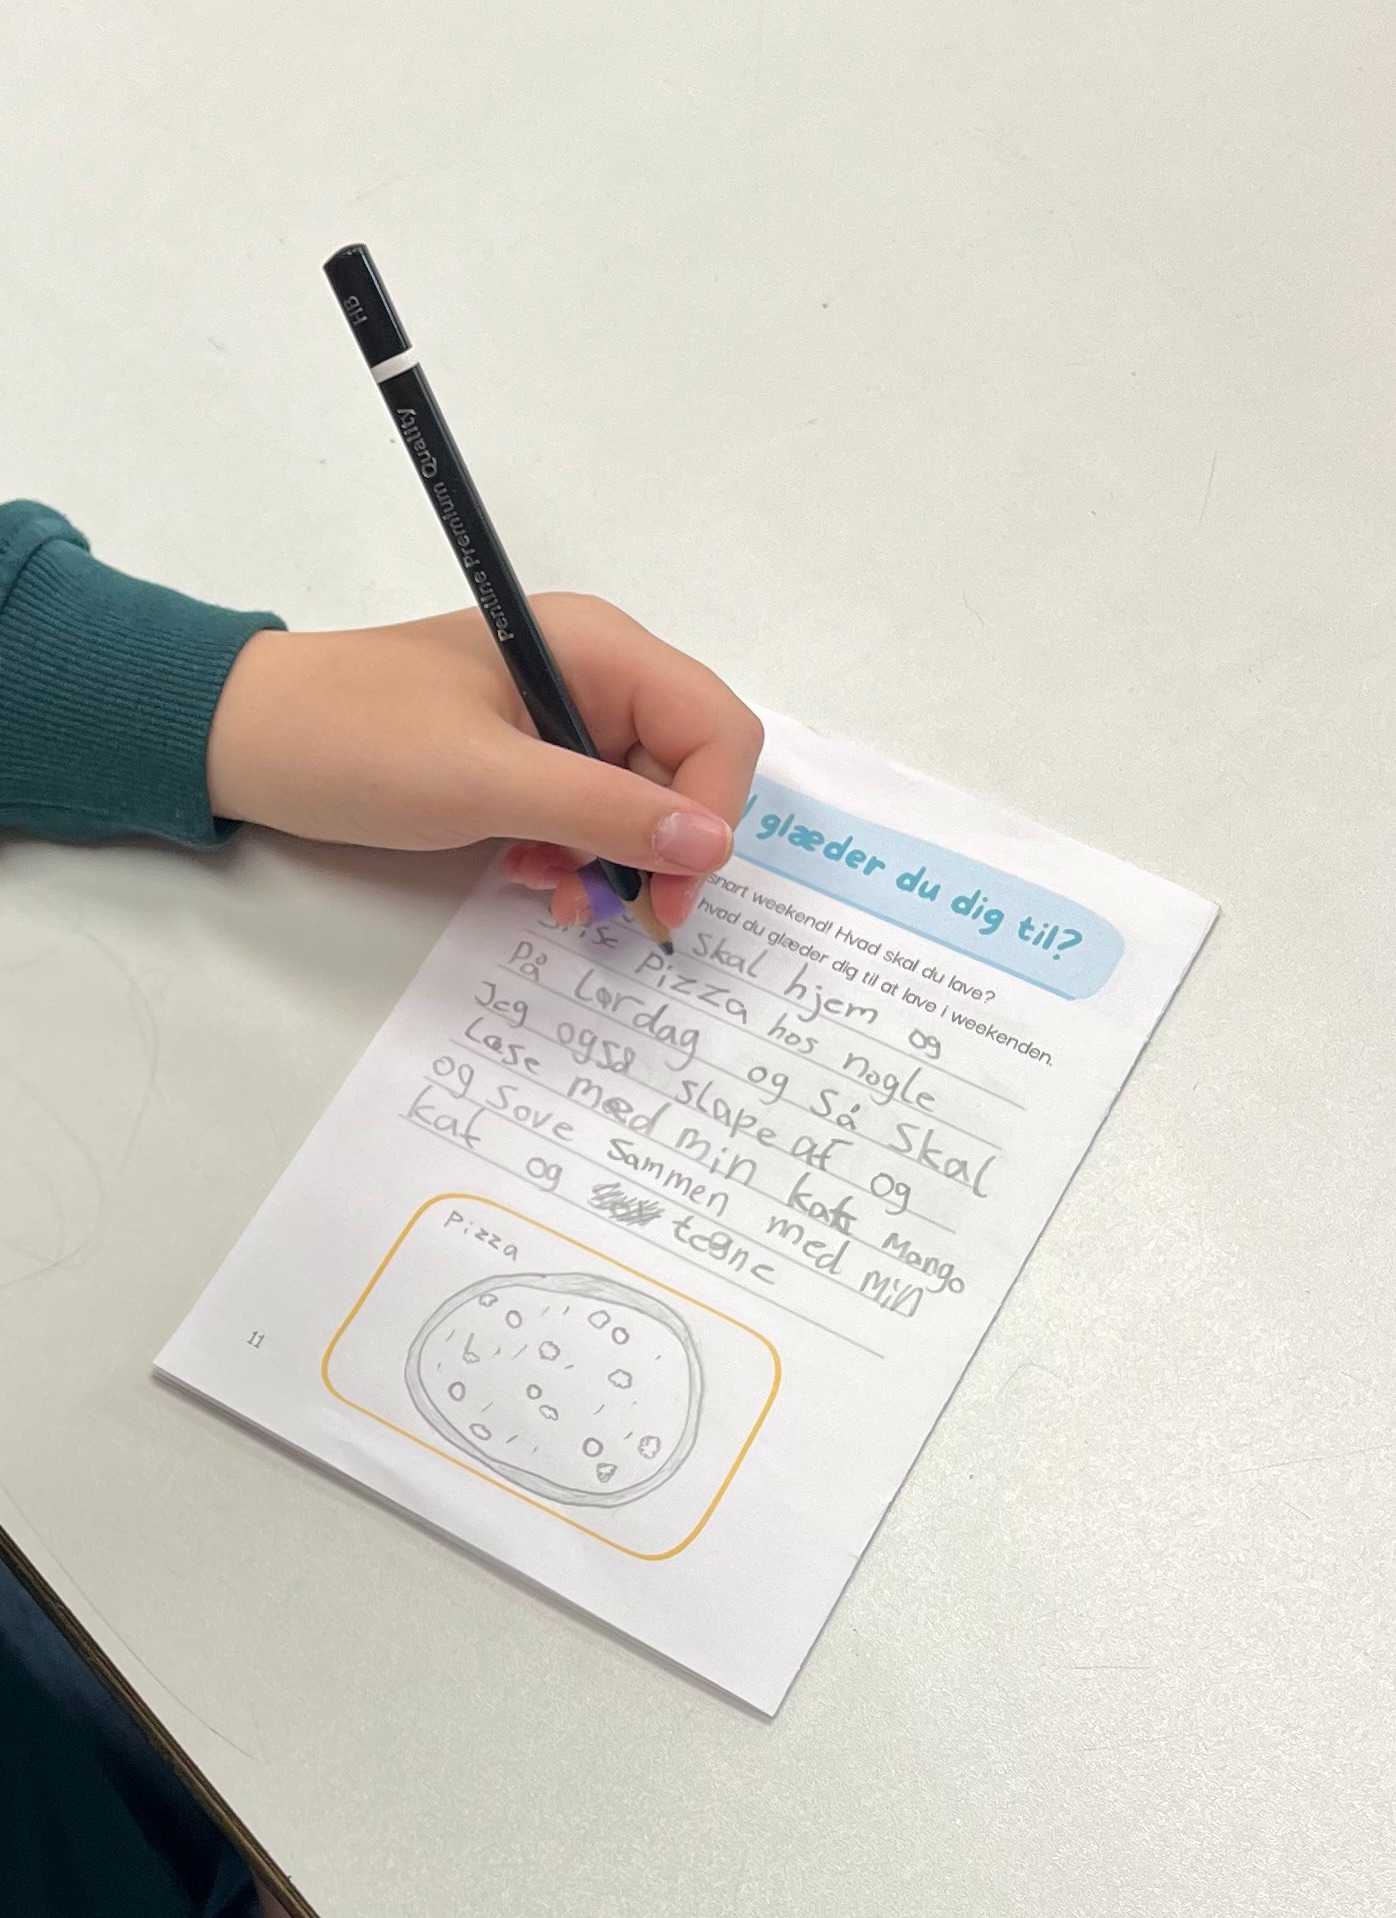 HB
Penline Premium Quality
glæder du dig til?
snart weekend! Hvad skal du lave?
hvad du glæder dig til at lave i weekenden.
skal hjem og
spise pizza hos nogle
på Lørdag og så skal
Jeg også slape af og
Læse med min kat Mango
og sove sammen med min
kat og tegne
pizza
11